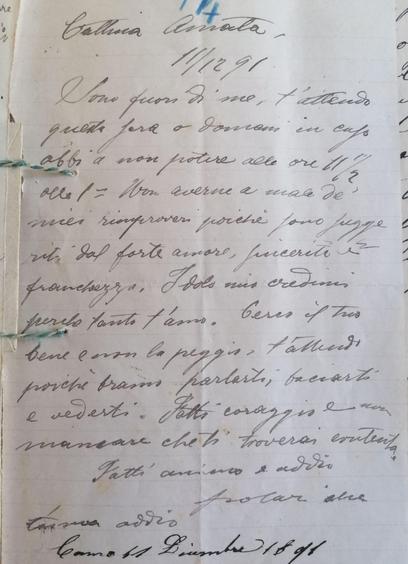 Cattiva Amata,
11/12 91
Sono fuori di me, t'attendo
questa sera o domani in caso
abbi a non potere alle ore 11 1/2
alle 1 = Non averne a male de'
miei rimproveri poiché sono sugge
riti dal forte amore, sincerità e
franchezza. Idolo mio credimi
perché tanto t'amo. Cerco il tuo
bene e non la peggio, t'attendo
poiché bramo parlarti, baciarti
e vederti. Fatti coraggio e non
mancare che ti troverai contenta.
Fatti animo e addio
addio
11 Dicembre 1891